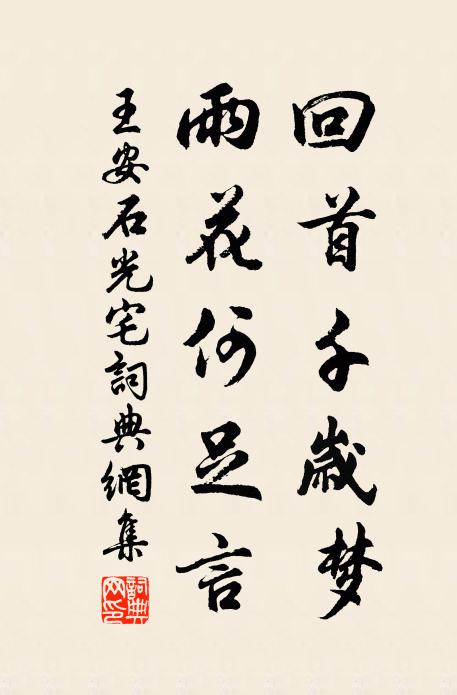 回首千歲梦
雨花何足言
王安石光宅詞典網集
詞典网印